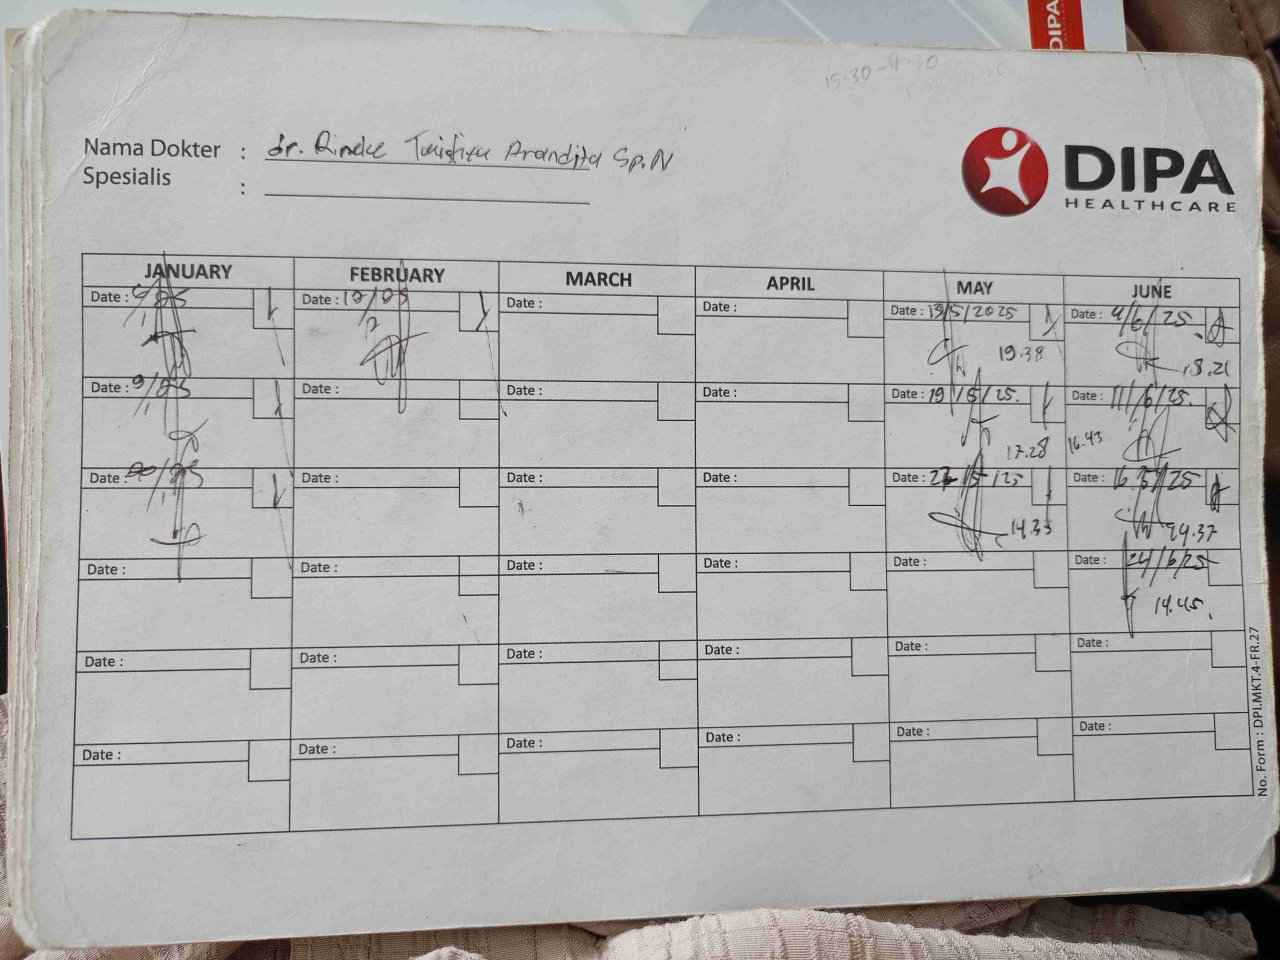 DIPA
15.30
Nama Dokter : dr. Rineke Twixtira Arandita Sp.N
Spesialis :
DIPA
HEALTHCARE
JANUARY FEBRUARY MARCH APRIL MAY JUNE
Date : Date : 10/ Date : Date : Date : 13/5/2025 Date : 4/6/25
19.38 18.21
Date : 9/ Date : Date : Date : Date : 19/5/25. Date : 11/6/25.
17.28 16.43
Date : Date : Date : Date : Date : /5/25 Date : 16 /25
14.33 14.37
Date : Date : Date : Date : Date : Date : 24/6/25
14.45.
Date : Date : Date : Date : Date : Date :
Date : Date : Date : Date : Date : Date :
No. Form : DPI.MKT.4-FR.27